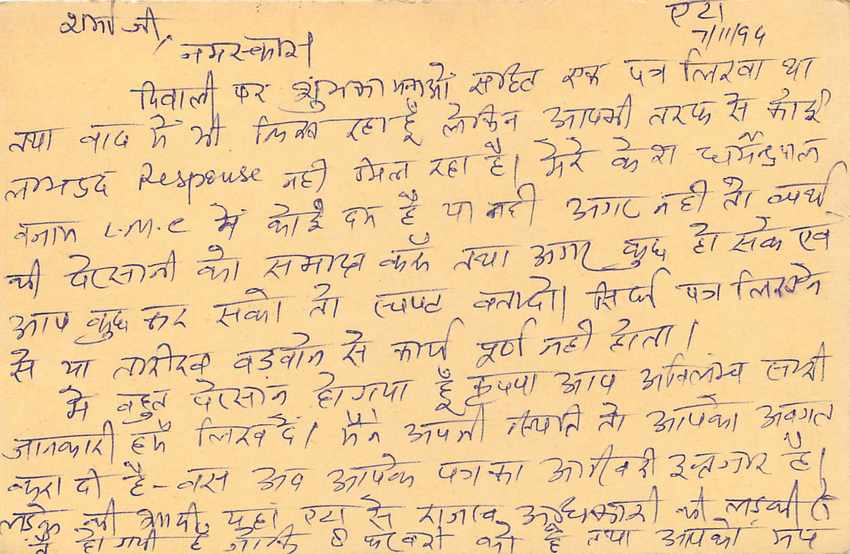 शर्मा जी, एटा
7/11/94
नमस्कार।
दिवाली पर शुभकामनाओं सहित एक पत्र लिखा था
तथा बाद में भी लिख रहा हूँ लेकिन आपकी तरफ से कोई
Response नहीं मिल रहा है। मेरे केश धर्मेन्द्रपाल
बनाम L.M.C में कोई दम है या नहीं अगर नहीं तो व्यर्थ
की परेसानी को समाप्त करूँ तथा अगर कुछ हो सके एवं
आप कुछ कर सको तो स्पष्ट बतादो। सिर्फ पत्र लिखने
से या तारीख बडवाने से कार्य पूर्ण नहीं होता।
मैं बहुत परेसान होगया हूँ कृपया आप अविलम्ब सारी
जानकारी हमें लिख दें। मैंने अपनी स्थिति तो आपको अवगत
करा दी है - बस अब आपके पत्र का आखिरी इन्तजार है।
लड़के की शादी यहां एटा से अधिकारी की लड़की
से हो गयी है जोकि फरवरी की है तथा आपको